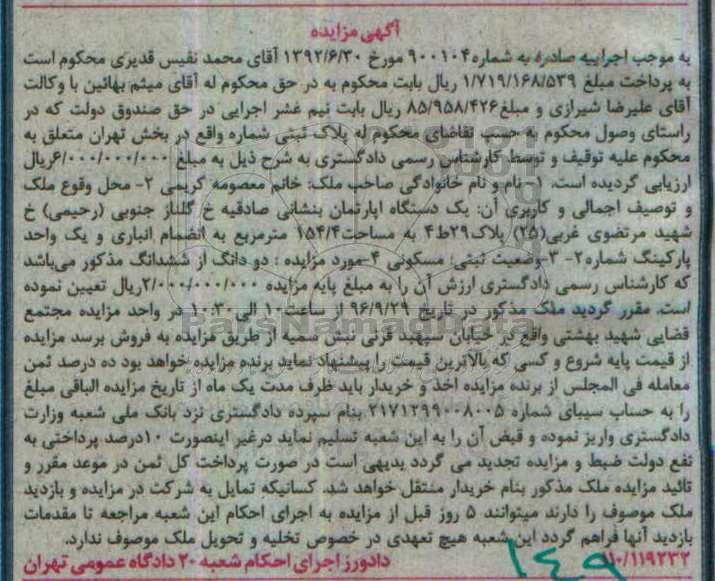 آگهی مزایده
به موجب اجراییه صادره به شماره ۹۰۰۱۰۴ مورخ ۱۳۹۲/۶/۳۰ آقای محمد نفیس قدیری محکوم است
به پرداخت مبلغ ۱/۷۱۹/۱۶۸/۵۳۹ ریال بابت محکوم به در حق محکوم له آقای میثم بهائین با وکالت
آقای علیرضا شیرازی و مبلغ ۸۵/۹۵۸/۴۲۶ ریال بابت نیم عشر اجرایی در حق صندوق دولت که در
راستای وصول محکوم به حسب تقاضای محکوم له پلاک ثبتی شماره واقع در بخش تهران متعلق به
محکوم علیه توقیف و توسط کارشناس رسمی دادگستری به شرح ذیل به مبلغ ۶/۰۰۰/۰۰۰/۰۰۰ریال
ارزیابی گردیده است. ۱- نام و نام خانوادگی صاحب ملک: خانم معصومه کریمی ۲- محل وقوع ملک
و توصیف اجمالی و کاربری آن: یک دستگاه اپارتمان بنشانی صادقیه خ گلناز جنوبی (رحیمی) خ
شهید مرتضوی غربی(۲۵) پلاک۲۹ط۴ به مساحت۱۵۴/۴ مترمربع به انضمام انباری و یک واحد
پارکینگ شماره۲- ۳-وضعیت ثبتی: مسکونی ۴-مورد مزایده : دو دانگ از ششدانگ مذکور می‌باشد
که کارشناس رسمی دادگستری ارزش آن را به مبلغ پایه مزایده ۲/۰۰۰/۰۰۰/۰۰۰ریال تعیین نموده
است. مقرر گردید ملک مذکور در تاریخ ۹۶/۹/۲۹ از ساعت۱۰ الی ۱۰:۳۰ در واحد مزایده مجتمع
قضایی شهید بهشتی واقع در خیابان سپهبد قرنی نبش سمیه از طریق مزایده به فروش برسد مزایده
از قیمت پایه شروع و کسی که بالاترین قیمت را پیشنهاد نماید برنده مزایده خواهد بود ده درصد ثمن
معامله فی المجلس از برنده مزایده اخذ و خریدار باید ظرف مدت یک ماه از تاریخ مزایده الباقی مبلغ
را به حساب سیبای شماره ۲۱۷۱۲۹۹۰۰۸۰۰۵ بنام سپرده دادگستری نزد بانک ملی شعبه وزارت
دادگستری واریز نموده و قبض آن را به این شعبه تسلیم نماید درغیر اینصورت ۱۰درصد پرداختی به
نفع دولت ضبط و مزایده تجدید می گردد بدیهی است در صورت پرداخت کل ثمن در موعد مقرر و
تائید مزایده ملک مذکور بنام خریدار منتقل خواهد شد. کسانیکه تمایل به شرکت در مزایده و بازدید
ملک موصوف را دارند میتوانند ۵ روز قبل از مزایده به اجرای احکام این شعبه مراجعه تا مقدمات
بازدید آنها فراهم گردد این شعبه هیچ تعهدی در خصوص تخلیه و تحویل ملک موصوف ندارد.
۱۱۰/۱۱۹۲۳۲ دادورز اجرای احکام شعبه ۲۰ دادگاه عمومی تهران
۱۴۹
ParsNamadData